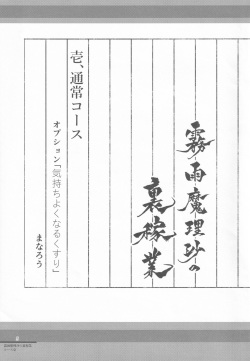 霧雨魔理沙の
裏稼業
壱、通常コース
オプション「気持ちよくなるくすり」
まなろう